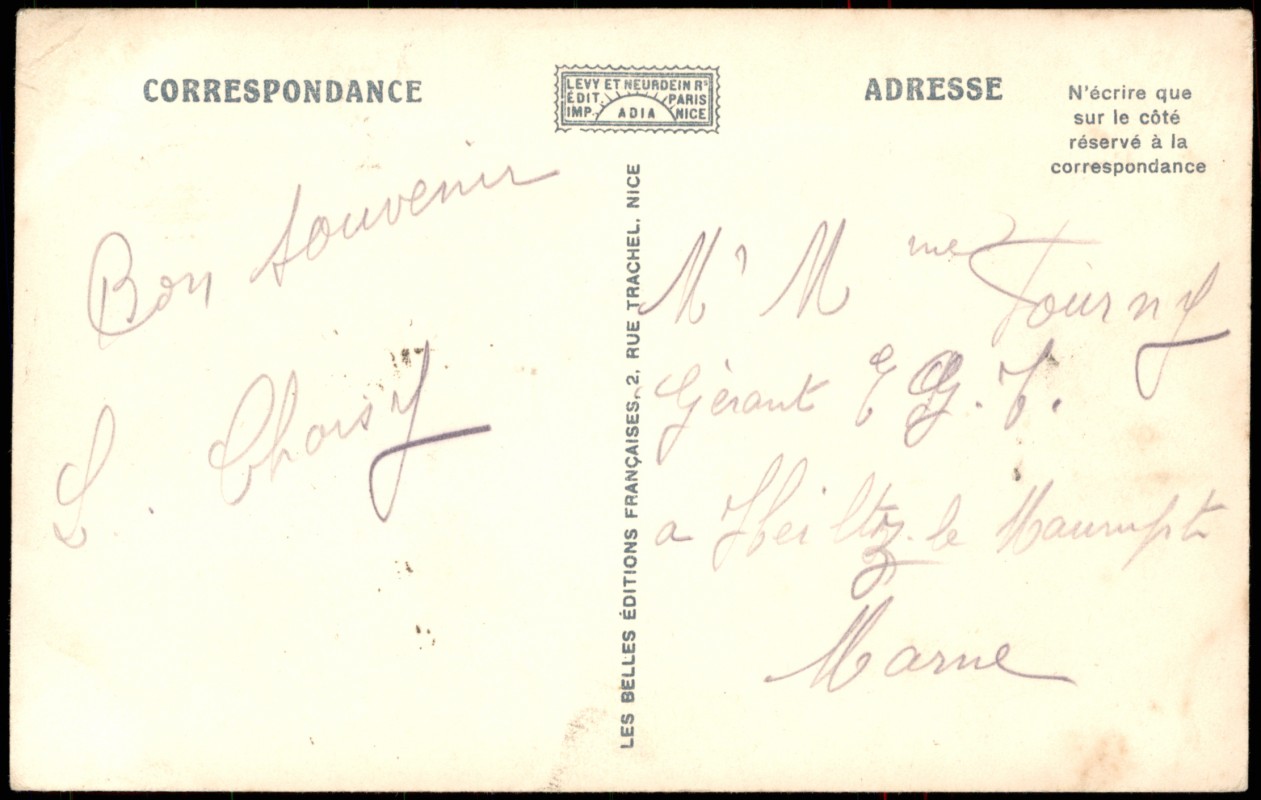 CORRESPONDANCE
LEVY ET NEURDEIN Rs
ÉDIT. PARIS
IMP. ADIA NICE
ADRESSE
N'écrire que
sur le côté
réservé à la
correspondance
Bon souvenir
L. Choisy
LES BELLES ÉDITIONS FRANÇAISES, 2, RUE TRACHEL, NICE
Mr Mme Tourny
Gérant E G. F.
a Heiltz-le Maurupt
Marne